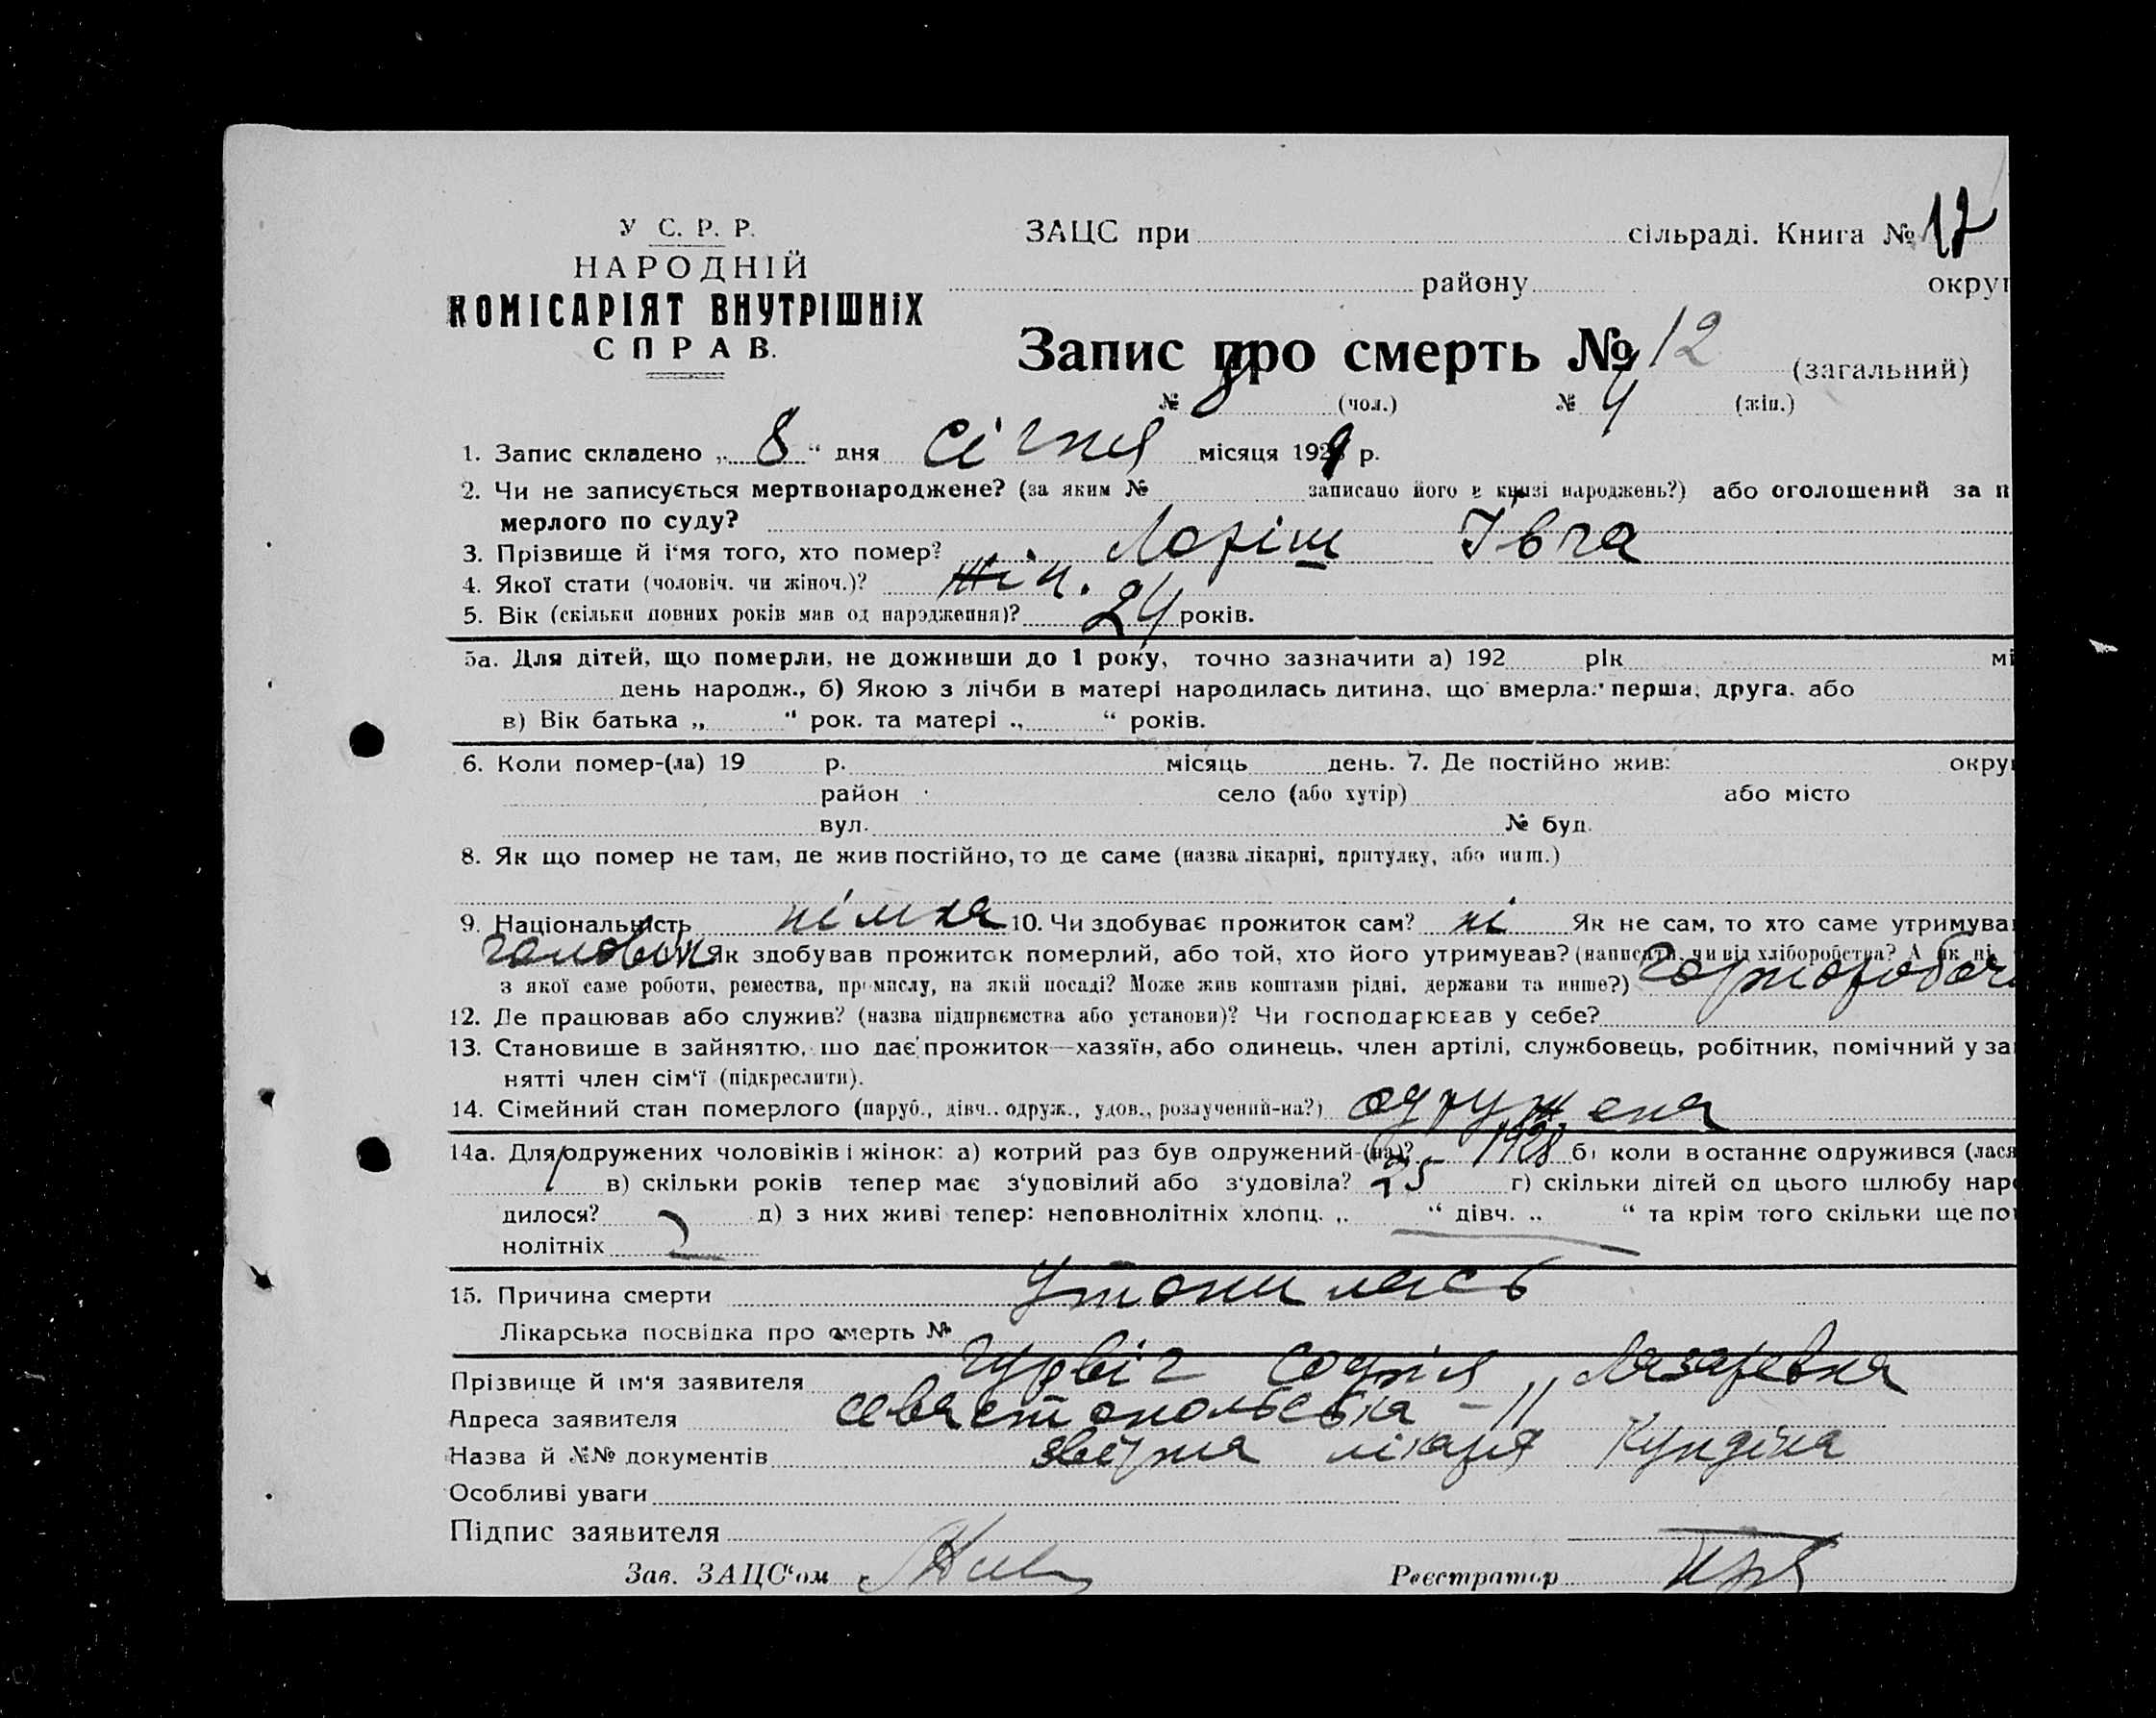 У С. Р. Р.
НАРОДНІЙ
КОМІСАРІЯТ ВНУТРІШНІХ
СПРАВ.
ЗАЦС при сільраді. Книга № 12
району округ
Запис про смерть № 12 (загальний)
№ 8 (чол.) № 4 (жін.)
1. Запис складено „ 8 “ дня січня місяця 1929 р.
2. Чи не записується мертвонароджене? (за яким № записано його в книзі народжень?) або оголошений за п
мерлого по суду?
3. Прізвище й і'мя того, хто помер? Лоріш Івга
4. Якої стати (чоловіч. чи жіноч.)? жін.
5. Вік (скільки повних років мав од народження)? 24 років.
5а. Для дітей, що померли, не доживши до 1 року, точно зазначити а) 192 рік мі
день народж., б) Якою з лічби в матері народилась дитина, що вмерла: перша, друга. або
в) Вік батька „ “ рок. та матері „ “ років.
6. Коли помер-(ла) 19 р. місяць день. 7. Де постійно жив: окру
район село (або хутір) або місто
вул. № буд.
8. Як що помер не там, де жив постійно, то де саме (назва лікарні, притулку, або инш.)
9. Національність німка 10. Чи здобуває прожиток сам? ні Як не сам, то хто саме утримува
чоловік Як здобував прожиток померлий, або той, хто його утримував? (написати, чи від хліборобства? А як ні,
з якої саме роботи, ремества, промислу, на якій посаді? Може жив коштами рідні, держави та инше?) чорнороboч
12. Де працював або служив? (назва підприємства або установи)? Чи господарював у себе?
13. Становище в зайняттю, що дає прожиток—хазяїн, або одинець, член артілі, службовець, робітник, помічний у за
нятті член сім'ї (підкреслити).
14. Сімейний стан померлого (паруб., дівч., одруж., удов., розлучений-на?) одружена
14а. Для одружених чоловіків і жінок: а) котрий раз був одружений-(на)? 1928 б) коли востаннє одружився (лася
1 в) скільки років тепер має з'удовілий або з'удовіла? 25 г) скільки дітей од цього шлюбу наро
дилося? д) з них живі тепер: неповнолітніх хлопц. „ “ дівч. „ “ та крім того скільки ще по
нолітніх
15. Причина смерти Утопилась
Лікарська посвідка про смерть №
Прізвище й ім'я заявителя Гурвіч Софія Лазаревна
Адреса заявителя севастопольська – 11
Назва й №№ документів лікаря
Особливі уваги
Підпис заявителя
Зав. ЗАЦС'ом
Реєстратор